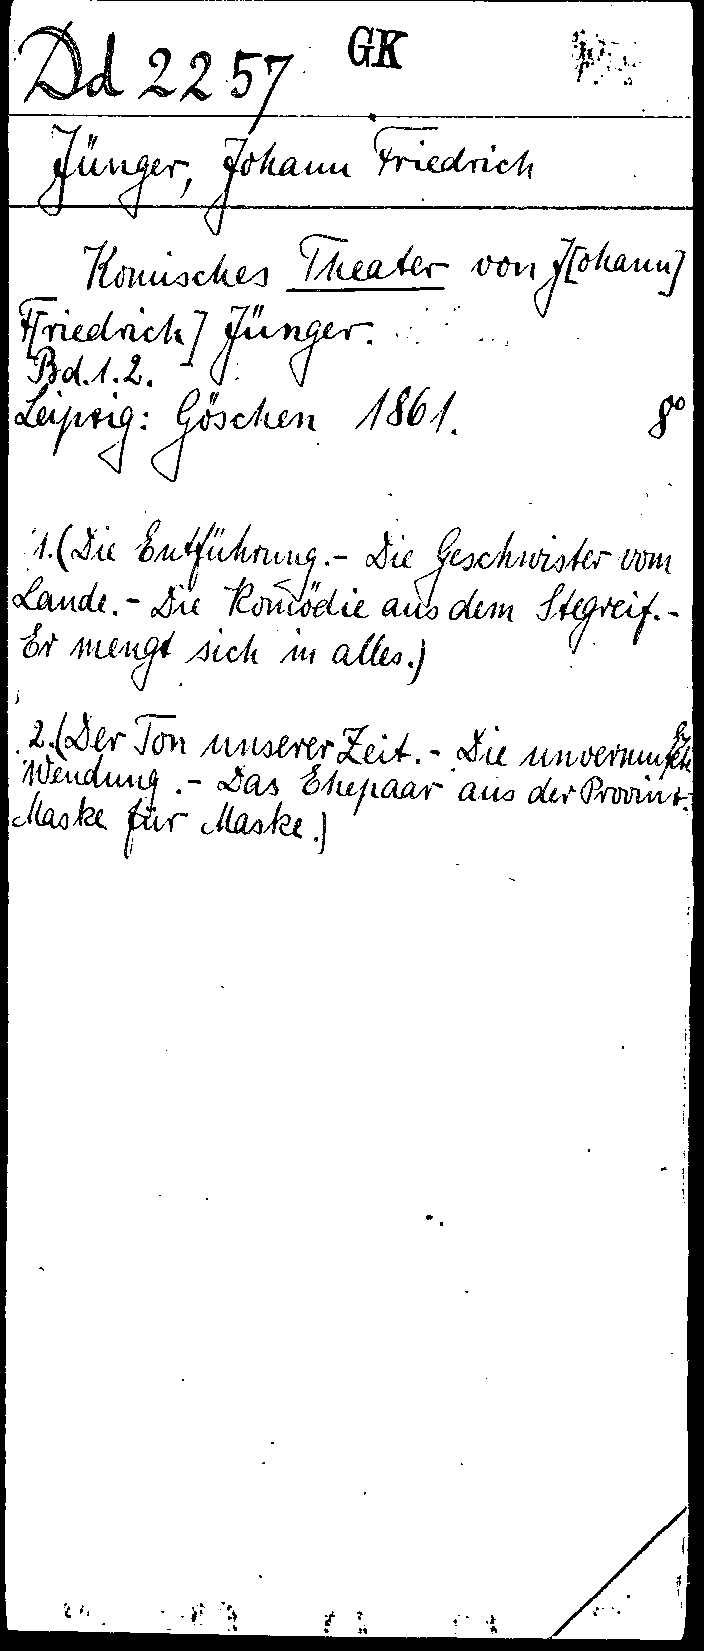 Dd 2257 GK
Jünger, Johann Friedrich
Komisches Theater von J[ohann]
F[riedrich] Jünger.
Bd. 1. 2.
Leipzig: Göschen 1861. 8°
1. (Die Entführung. - Die Geschwister vom
Lande. - Die Komödie aus dem Stegreif. -
Er mengt sich in alles.)
2. (Der Ton unserer Zeit. - Die
Wendung. - Das Ehepaar aus der Provinz.
Maske für Maske.)